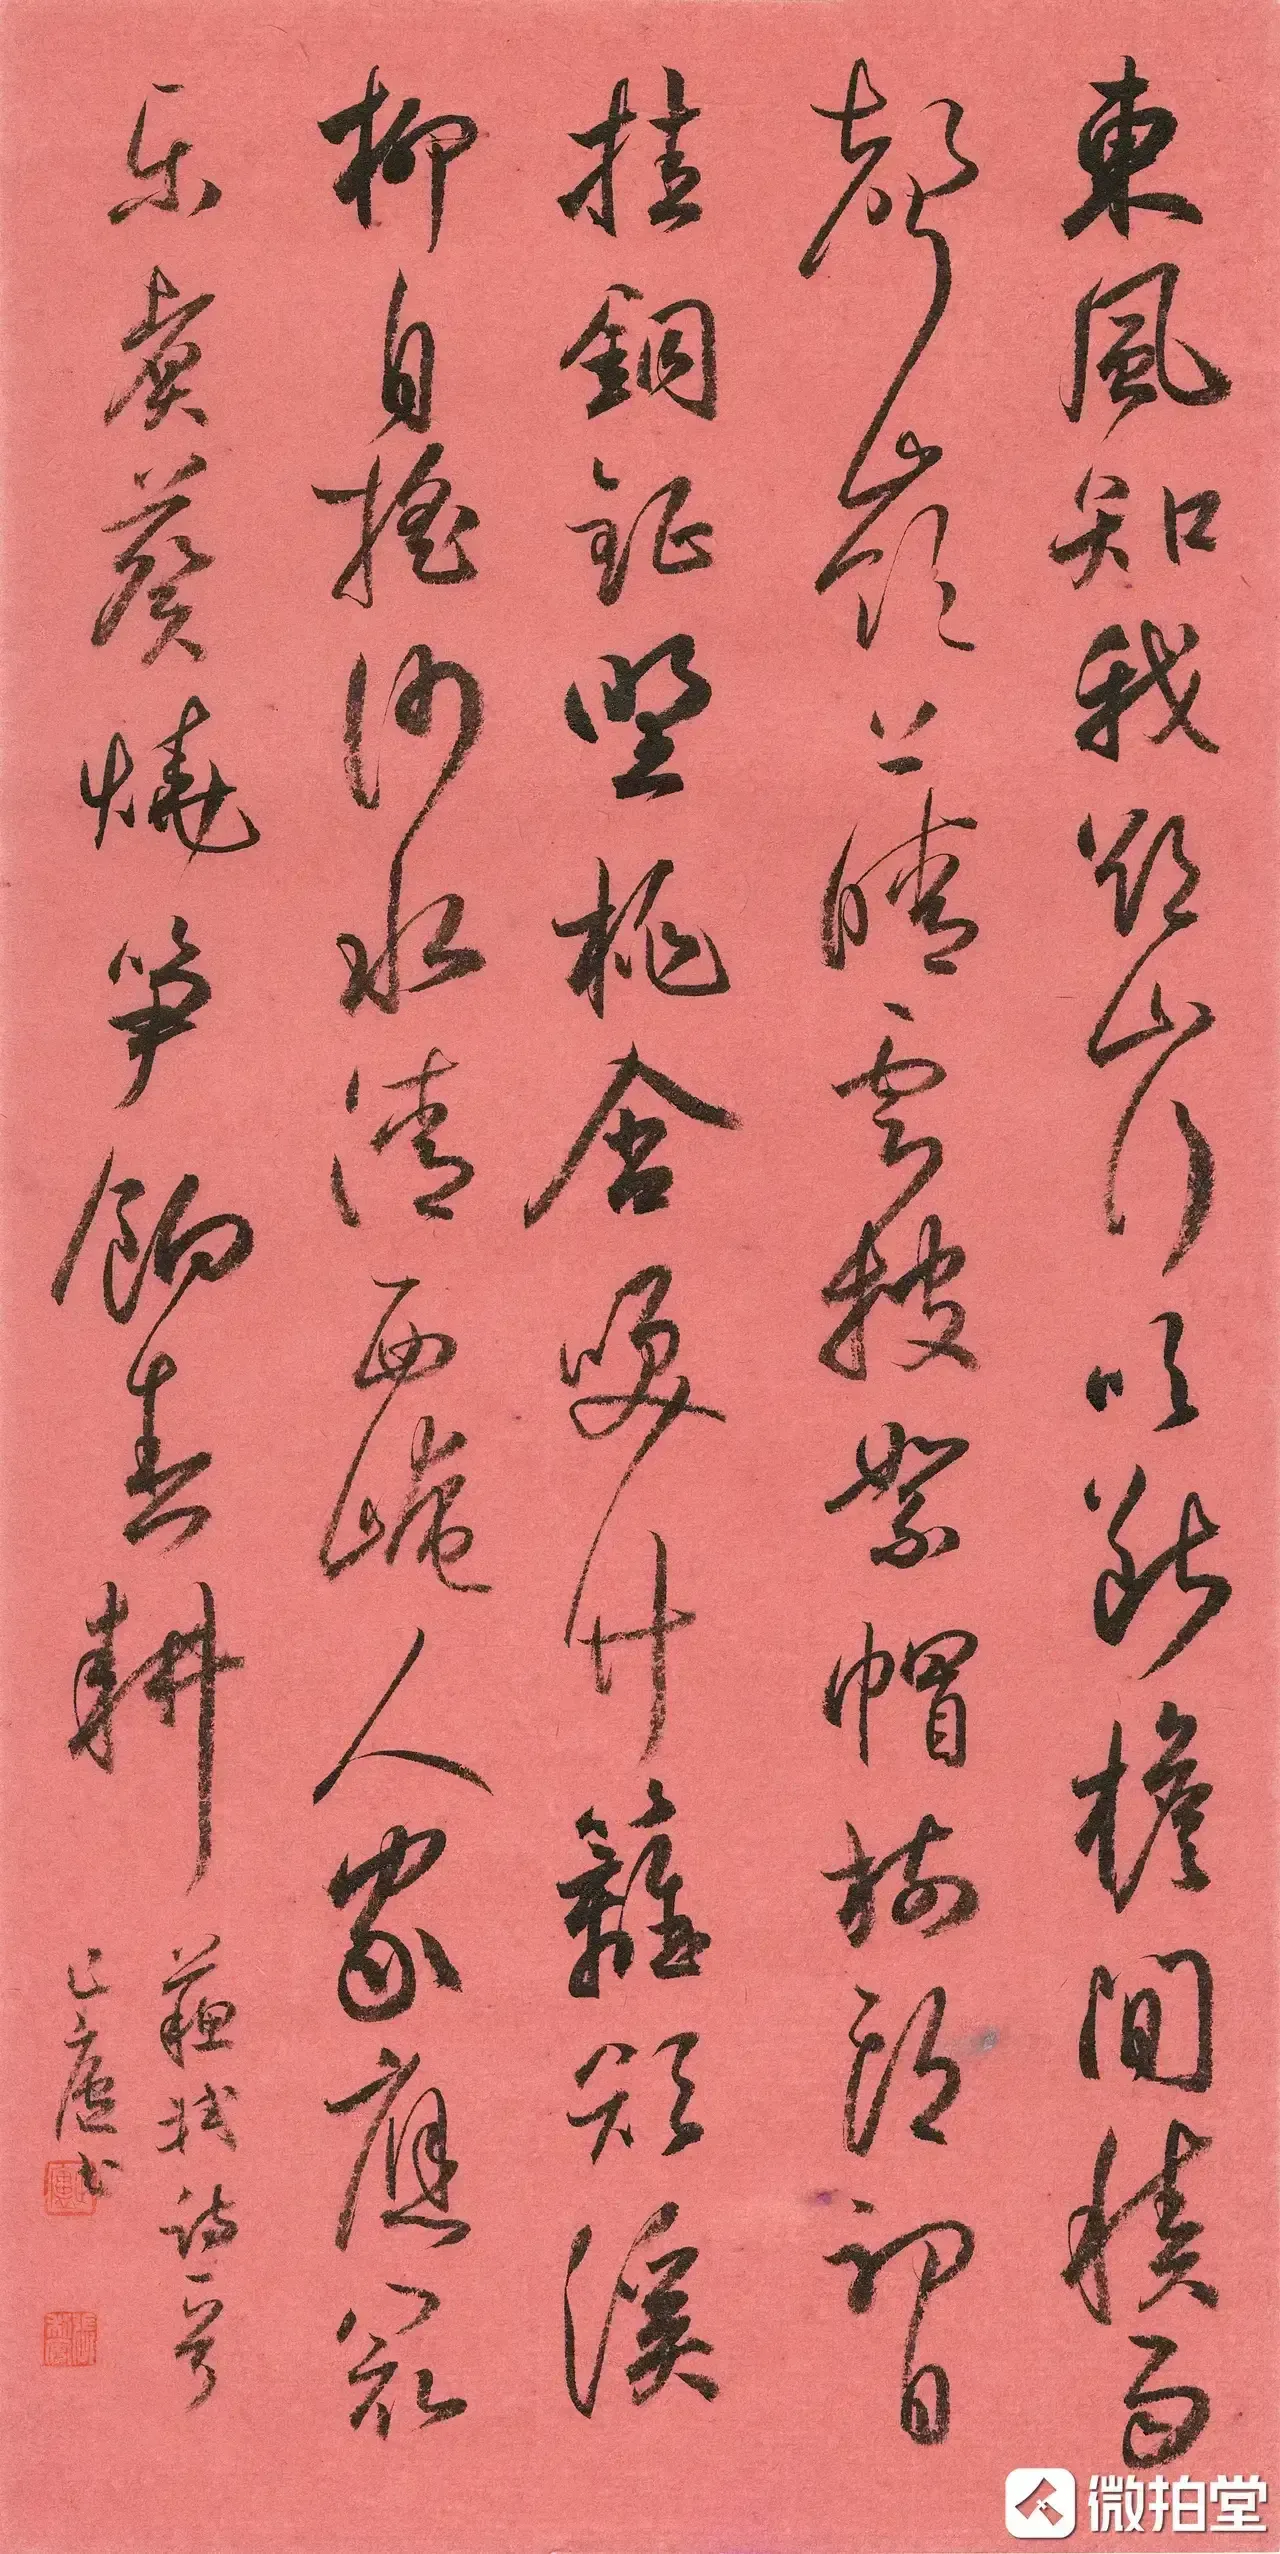 東風知我欲山行吹斷檐間積雨
聲嶺上晴雲披絮帽樹頭初日
挂銅鉦埜桃含咲竹籬短溪
柳自搖沙水清西崦人家應最
乐煮葵燒笋餉春耕
蘇軾詩一首
廬書
微拍堂